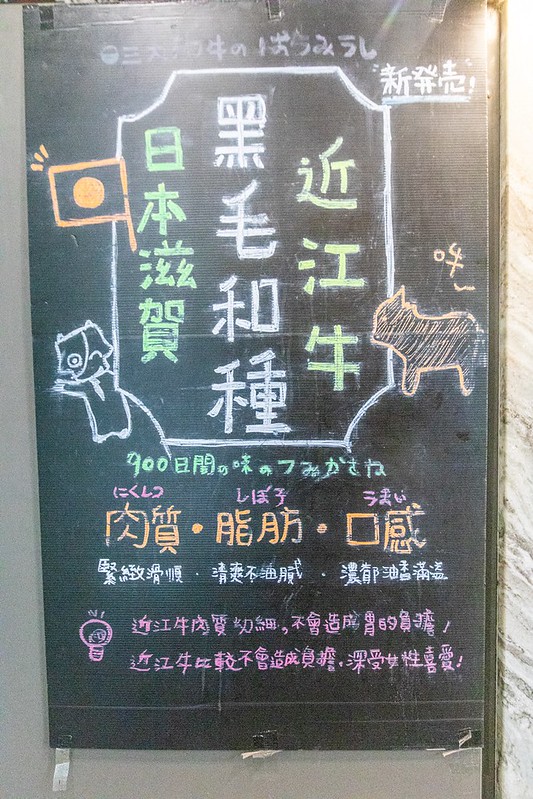 "新発売"!
近江牛
黑毛和種
日本滋賀
哞~
900日間の味のつみかさね
にくしつ しぼう うまい
肉質・脂肪・口感
緊緻滑順・清爽不油膩・濃郁油香滿溢
近江牛肉質幼細,不會造成胃的負擔!
近江牛比較不會造成負擔,深受女性喜愛!